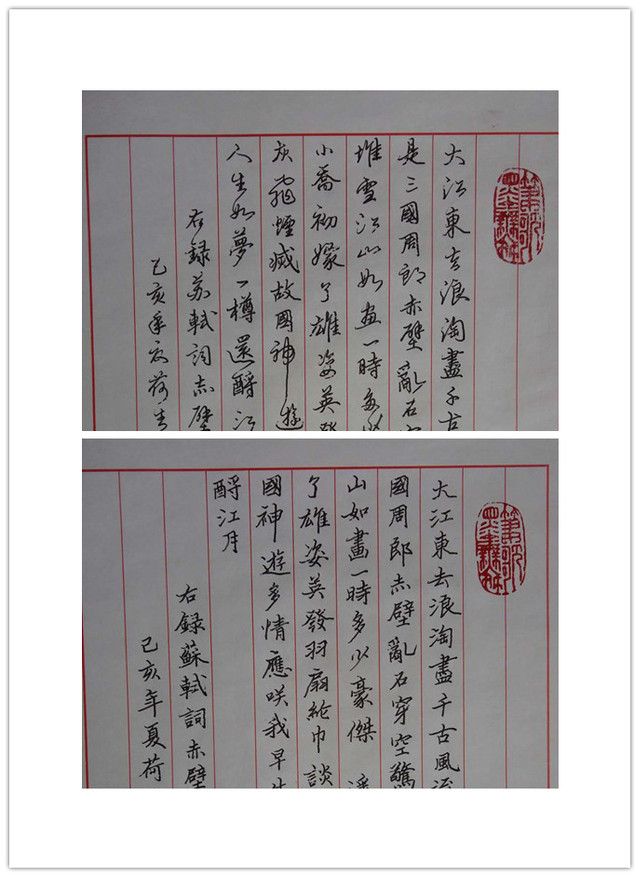 大江東去浪淘盡千古
是三國周郎赤壁亂石
堆雪江山如畫一時多少
小喬初嫁了雄姿英發
灰飛煙滅故國神遊
人生如夢一樽還酹江
右錄蘇軾詞赤壁
己亥年夏荷生
大江東去浪淘盡千古風流
國周郎赤壁亂石穿空驚
山如畫一時多少豪傑遙
了雄姿英發羽扇綸巾談
國神遊多情應笑我早生
酹江月
右錄蘇軾詞赤壁
己亥年夏荷